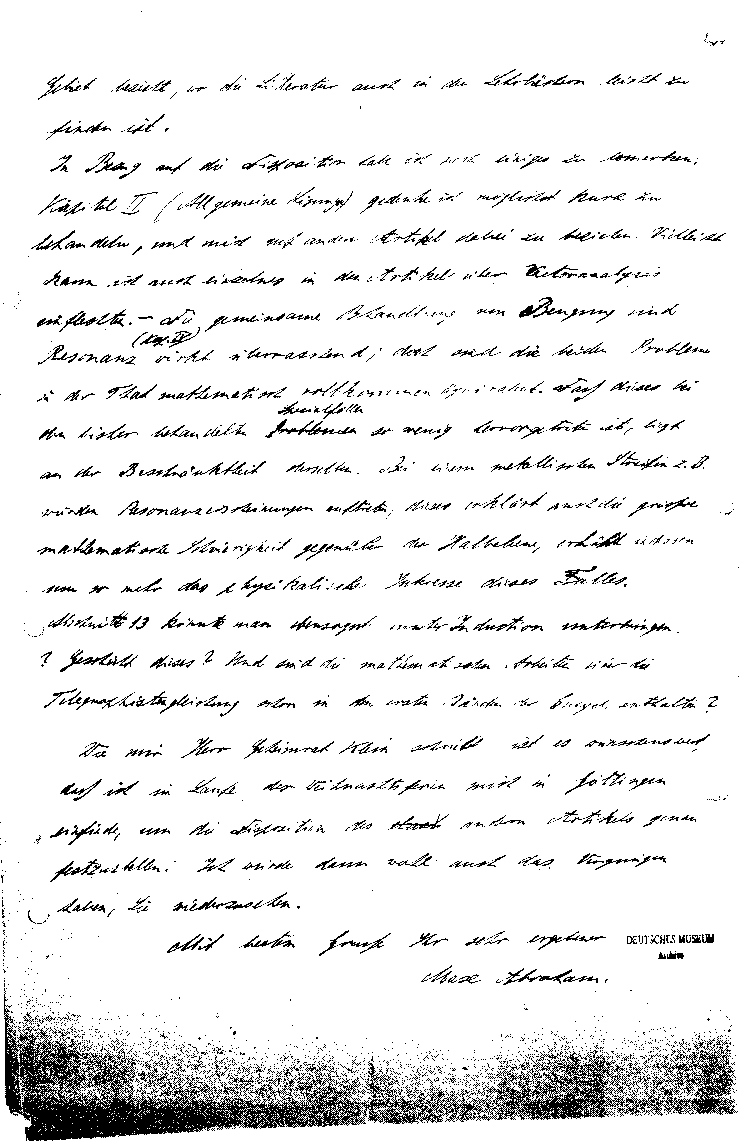 Gebiet bezieht, wo die Literatur auch in den Lehrbüchern leicht zu
finden ist.
In Bezug auf die Disposition habe ich noch einiges zu bemerken.
Kapitel II (Allgemeine ) gedenke ich möglichst kurz zu
behandeln, und mich auf andere Artikel dabei zu beziehen. Vielleicht
kann ich auch einzelnes in den Artikel über Vectoranalysis
einflechten. — Die gemeinsame Behandlung von Beugung und
Resonanz wirkt überraschend; doch sind die beiden Probleme
in der That mathematisch vollkommen äquivalent. Dass dieses bei
Specialfällen
den bisher behandelten Problemen so wenig hervorgetreten ist, liegt
an der Beschränktheit derselben. Bei einem metallischen Streifen z. B.
würden Resonanzerscheinungen auftreten; dieses erklärt auch die grössere
mathematische Schwierigkeit gegenüber der Halbebene, erhöht indessen
um so mehr das physikalische Interesse dieses Falles.
Abschnitt 13 könnte man ebensogut unter Induction unterbringen.
? Geschieht dieses? Und sind die mathematischen Arbeiten über die
Telegraphistengleichung schon in den ersten Bänden der enthalten?
Wie mir Herr Geheimrat Klein schreibt ist es wünschenswert,
dass ich im Laufe der Weihnachtsferien mich in Göttingen
einfinde, um die Disposition des andern Artikels genau
festzustellen. Ich würde dann wohl auch das Vergnügen
haben, Sie wiederzusehen.
Mit bestem Gruss Ihr sehr ergebener
DEUTSCHES MUSEUM
Archive
Max Abraham.